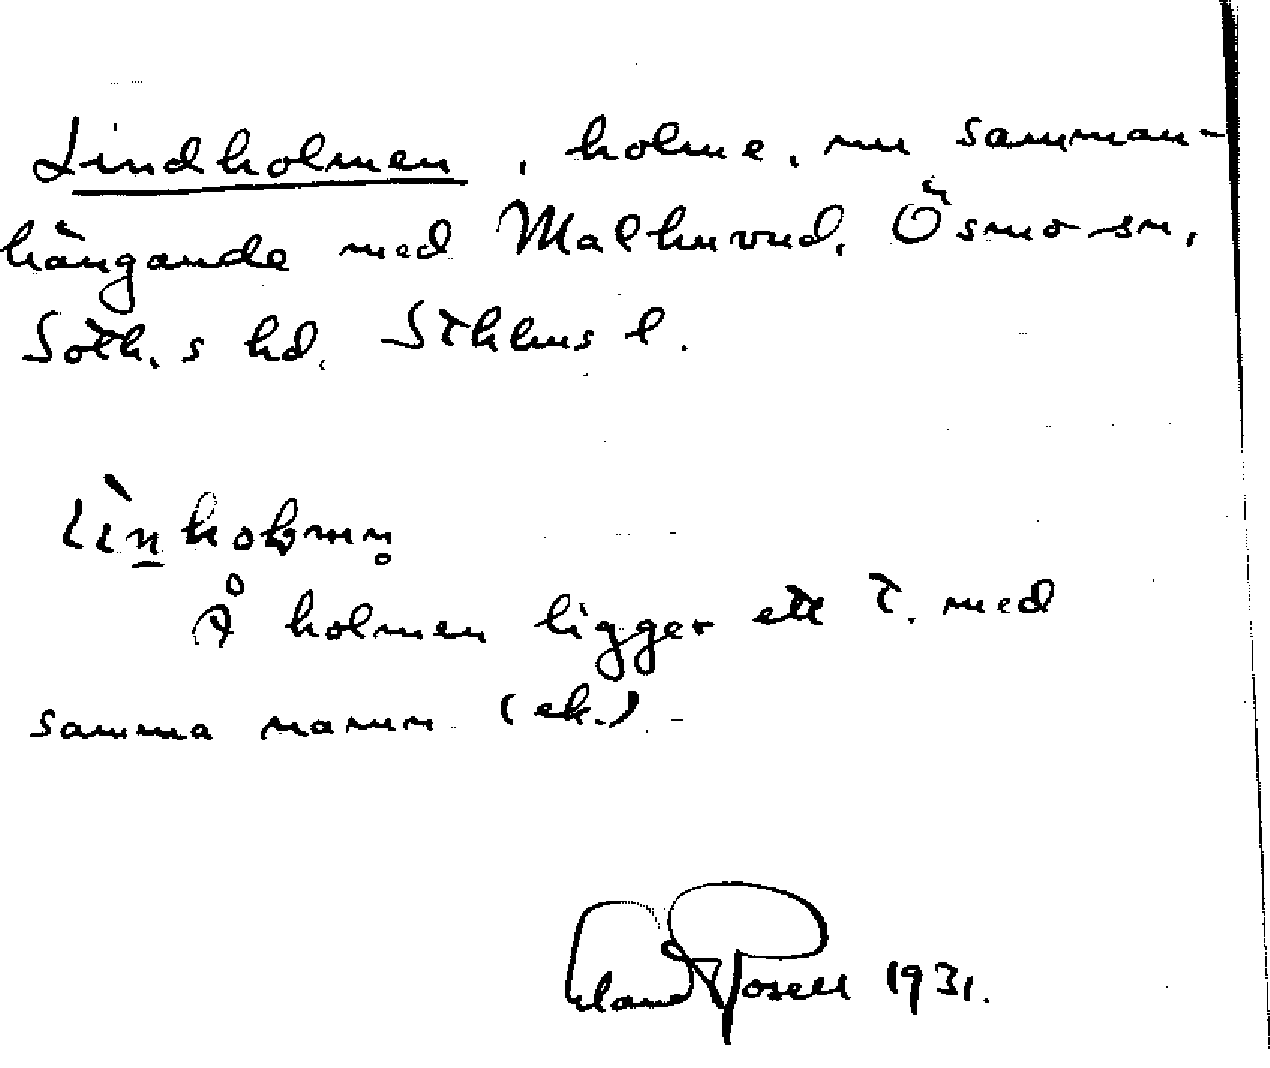 Lindholmen, holme, nu samman-
hängande med Malhuvud. Ösmo sn,
Soth.s hd. Sthlms l.
Lìn̲holmn̥
Å holmen ligger ett t. med
samma namn (ek.)
Rosell 1931.